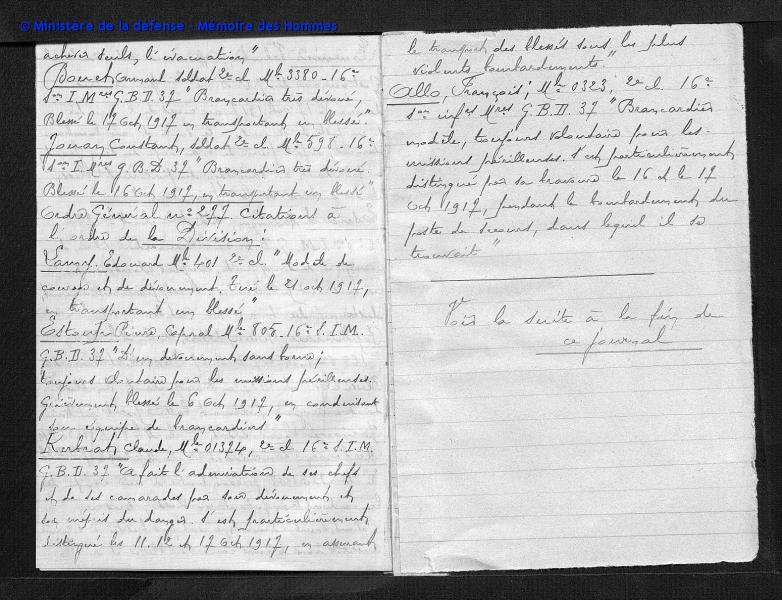 © Ministère de la défense - Mémoire des Hommes
achever seuls, l'évacuation"
Armand soldat 2e cl. Mle 3380 - 16e
son I. Mres G.B.D. 37 "Brancardier très dévoué,
Blessé le 17 Oct 1917 en transportant un blessé"
Jouan Constant, soldat 2e cl. Mle 598 - 16e
son I. Mres G.B.D. 37 "Brancardier très dévoué.
Blessé le 16 Oct 1917, en transportant un blessé"
Ordre Général no 277. Citations à
l'ordre de la Division:
Lamy. Edouard Mle 401 2e cl. "Modèle de
courage et de dévouement. Tué le 21 oct 1917,
en transportant un blessé"
Pierre, Caporal Mle 805 - 16e S.I.M.
G.B.D. 37 "D'un dévouement sans borne;
toujours volontaire pour les missions périlleuses.
Grièvement blessé le 6 Oct 1917, en conduisant
son équipe de brancardiers"
Kerbrat Claude, Mle 01374, 2e cl 16e S.I.M.
G.B.D. 37 "A fait l'admiration de ses chefs
et de ses camarades par son dévouement et
son mépris du danger. S'est particulièrement
distingué les 11. 12 et 17 Oct 1917, en assurant
le transport des blessés sous les plus
violents bombardements"
Allo, François; Mle 0323, 2e cl. 16e
son infes Mres G.B.D. 37 "Brancardier
modèle, toujours volontaire pour les
missions périlleuses. S'est particulièrement
distingué par sa bravoure le 16 et le 17
Oct 1917, pendant le bombardement du
poste de secours, dans lequel il se
trouvait"
Voir la suite à la fin de
ce journal